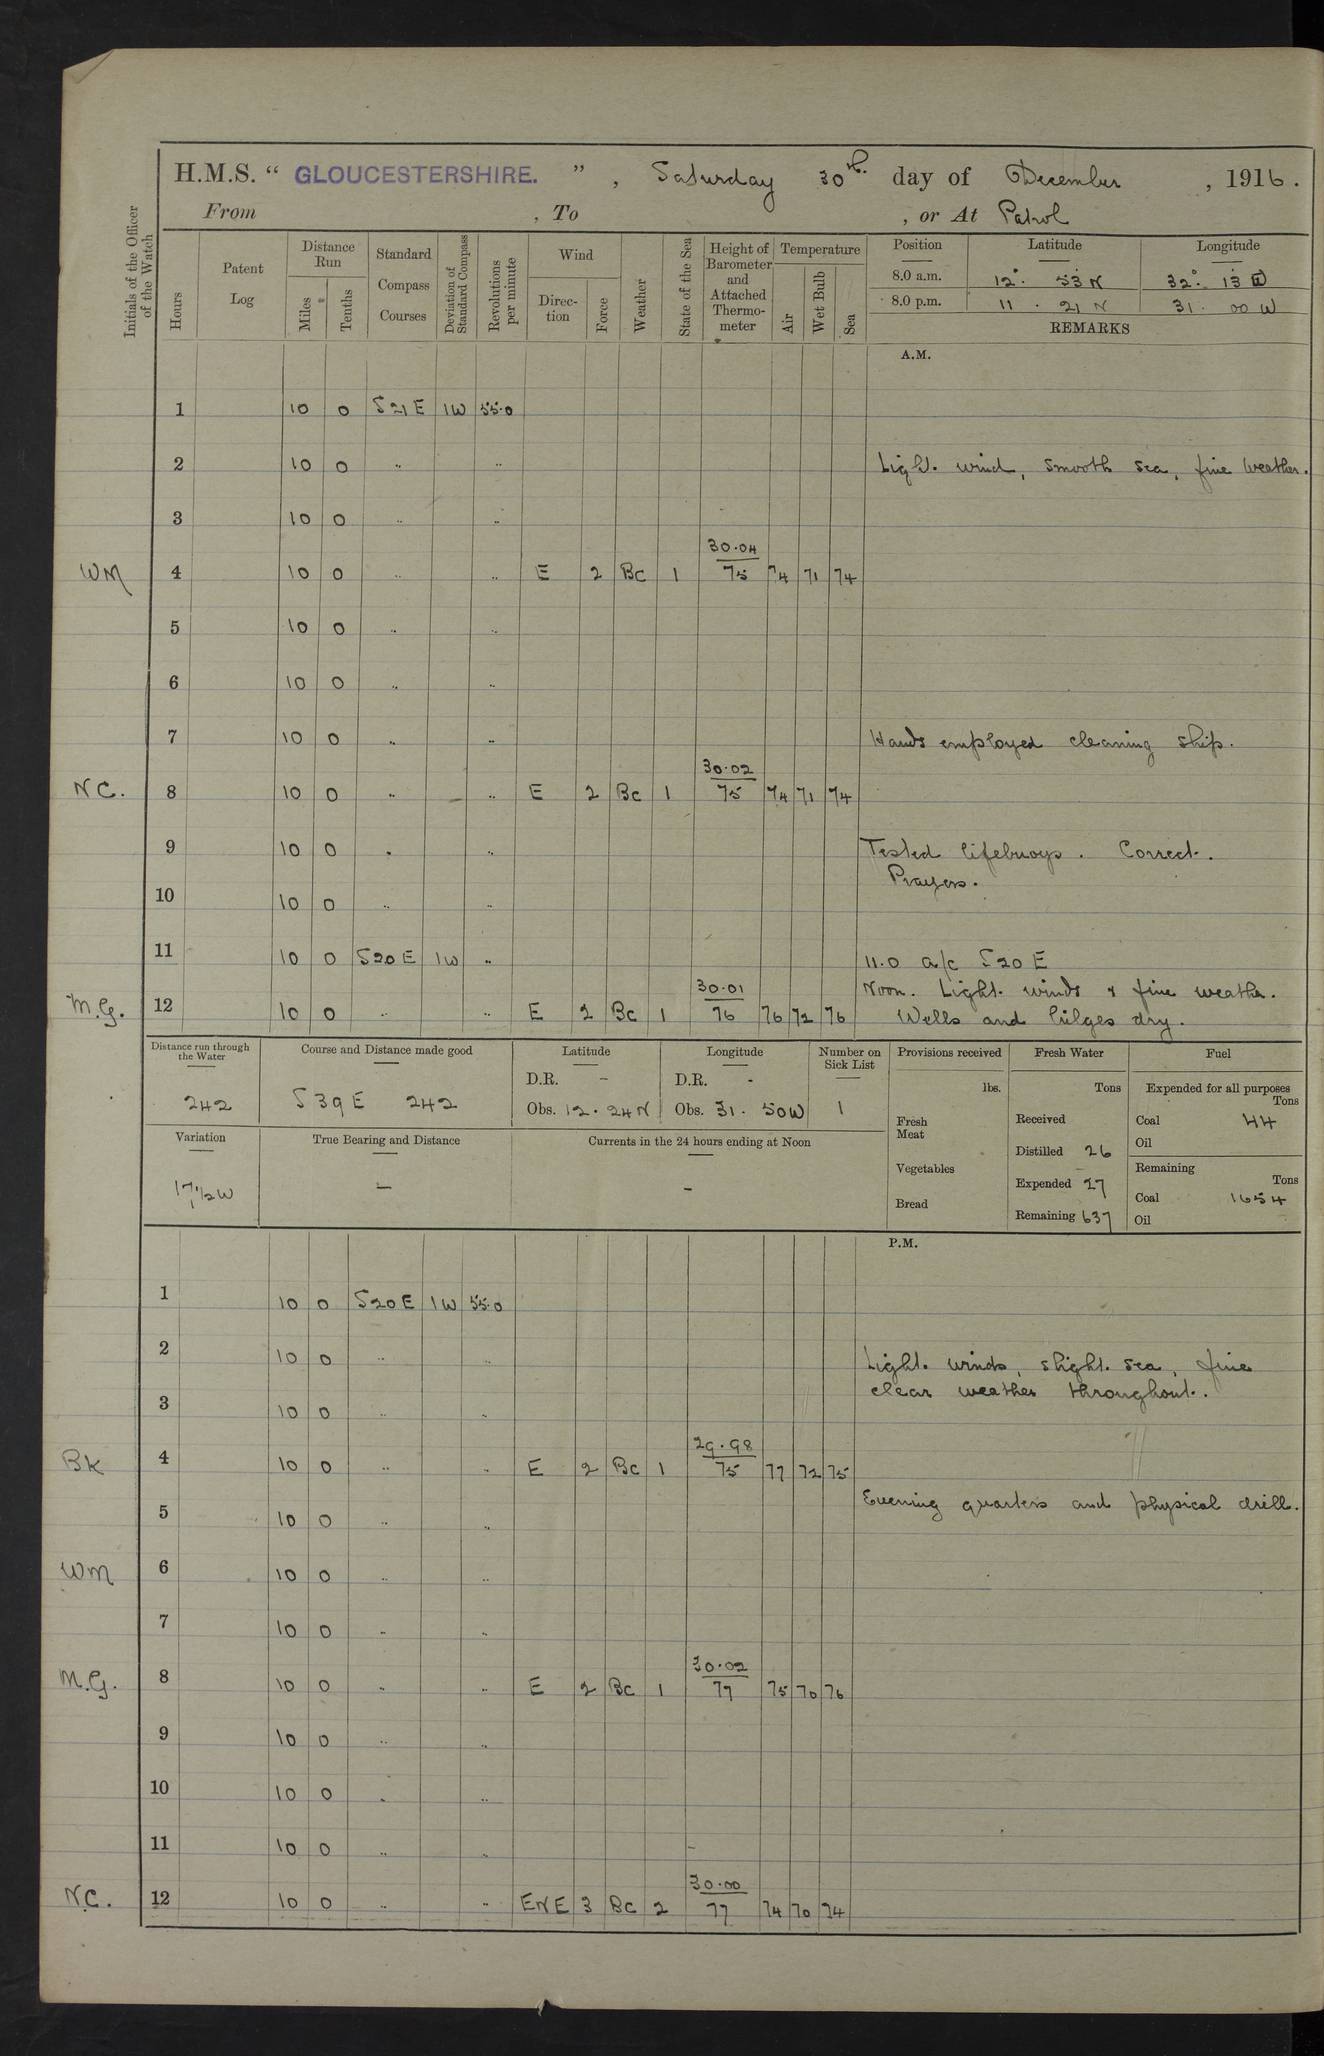 H.M.S. “ GLOUCESTERSHIRE. ” , Saturday 30th. day of December , 1916.
From , To , or At Patrol
Initials of the Officer of the Watch
Hours
Patent Log
Distance Run
Miles
Tenths
Standard Compass Courses
Deviation of Standard Compass
Revolutions per minute
Wind
Direc-tion
Force
Weather
State of the Sea
Height of Barometer and Attached Thermo-meter
Temperature
Air
Wet Bulb
Sea
Position Latitude Longitude
8.0 a.m. 12° 53 N 32° 13 W
8.0 p.m. 11 . 21 N 31 . 00 W
REMARKS
A.M.
1 10 0 S21E 1W 55.0
2 10 0 .. .. Light. wind, smooth sea, fine weather.
3 10 0 .. ..
30.04
WM 4 10 0 .. .. E 2 Bc 1 75 74 71 74
5 10 0 .. ..
6 10 0 .. ..
7 10 0 .. .. Hands employed cleaning ship.
30.02
NC. 8 10 0 .. — .. E 2 Bc 1 75 74 71 74
9 10 0 .. .. Tested lifebuoys. Correct.
Prayers.
10 10 0 .. ..
11 10 0 S20E 1W .. 11.0 a/c S20E
30.01 Noon. Light. winds & fine weather.
M.G. 12 10 0 .. .. E 2 Bc 1 76 76 72 76 Wells and bilges dry.
Distance run through the Water
242
Course and Distance made good
S39E 242
Latitude
D.R. -
Obs. 12 . 24 N
Longitude
D.R. -
Obs. 31 . 50W
Number on Sick List
1
Provisions received
lbs.
Fresh Meat
Vegetables
Bread
Fresh Water
Tons
Received
Distilled 26
Expended 27
Remaining 637
Fuel
Expended for all purposes
Tons
Coal 44
Oil
Remaining
Tons
Coal 1654
Oil
Variation
17½W
True Bearing and Distance
—
Currents in the 24 hours ending at Noon
-
P.M.
1 10 0 S20E 1W 55.0
2 10 0 .. .. Light. winds, slight. sea, fine
clear weather throughout.
3 10 0 .. ..
29.98
BK 4 10 0 .. .. E 2 Bc 1 75 77 72 75
Evening quarters and physical drill.
5 10 0 .. ..
WM 6 10 0 .. ..
7 10 0 .. ..
30.02
M.G. 8 10 0 .. .. E 2 Bc 1 77 75 70 76
9 10 0 .. ..
10 10 0 .. ..
11 10 0 .. ..
30.00
NC. 12 10 0 .. .. ENE 3 Bc 2 77 74 70 74